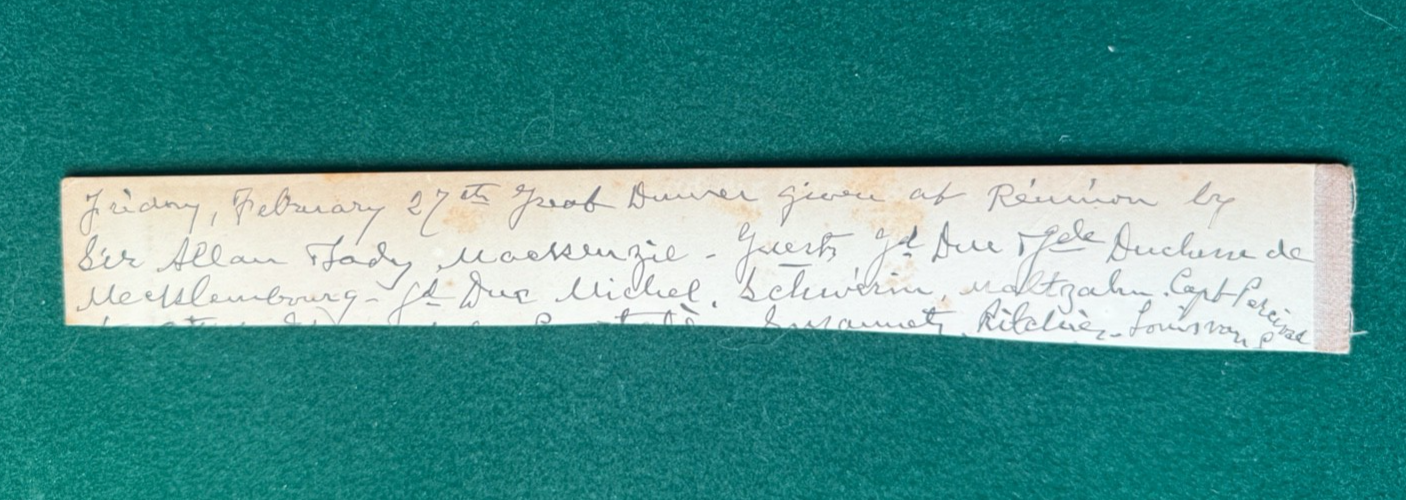 Friday, February 27th Great Dinner given at Réunion by
Sir Allan & Lady Mackenzie - Guests Gd Duc & Gde Duchesse de
Mecklembourg - Gd Duc Michel, Schwerin, Maltzahn. Capt Percival
Suzannet, Ritchie - Louis van